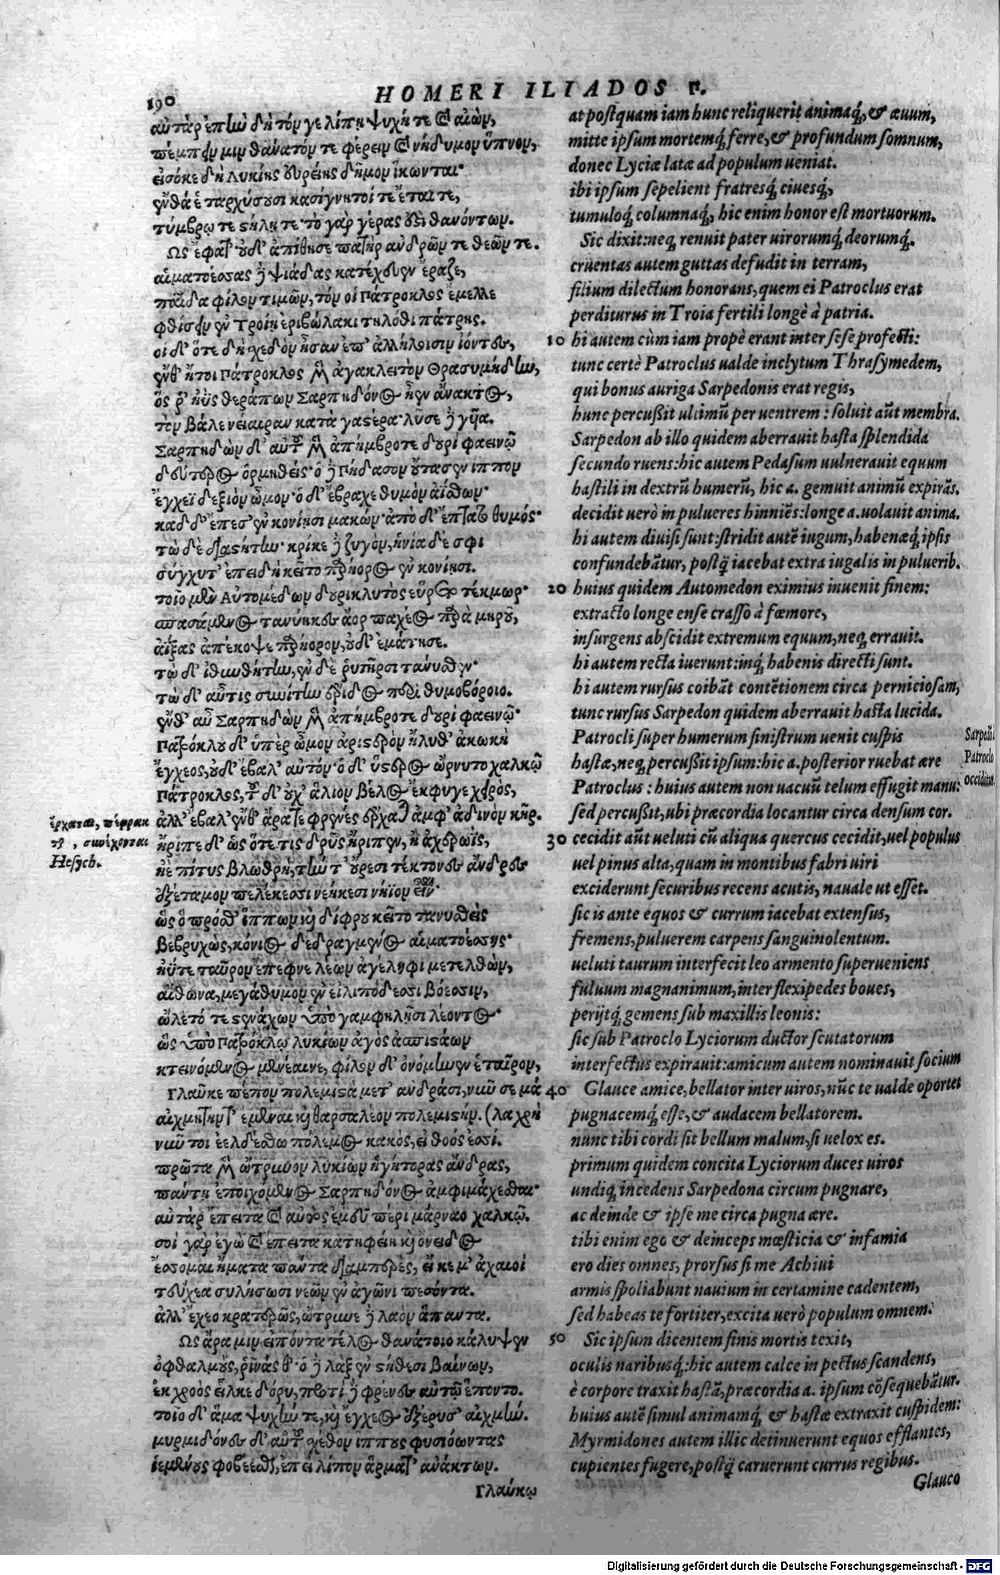 190
HOMERI ILIADOS π.
αὐτὰρ ἐπὴν δὴ τόν γε λίπῃ ψυχή τε καὶ αἰὼν,
πέμπειν μιν θάνατόν τε φέρειν καὶ νήδυμον ὕπνον,
εἰσόκε δὴ λυκίης εὐρείης δῆμον ἵκωνται·
ἔνθά ἑ ταρχύσουσι κασίγνητοί τε ἔται τε,
τύμβῳ τε στήλῃ τε· τὸ γὰρ γέρας ἐστὶ θανόντων.
Ὣς ἔφατ' οὐδ' ἀπίθησε πατὴρ ἀνδρῶν τε θεῶν τε.
αἱματοέσσας δὲ ψιάδας κατέχευεν ἔραζε,
παῖδα φίλον τιμῶν, τόν οἱ Πάτροκλος ἔμελλε
φθίσειν ἐν Τροίῃ ἐριβώλακι τηλόθι πάτρης.
οἱ δ' ὅτε δὴ σχεδὸν ἦσαν ἐπ' ἀλλήλοισιν ἰόντες,
ἔνθ' ἤτοι Πάτροκλος μὲν ἀγακλειτὸν Θρασυμήδην,
ὅς ῥ' ἠῢς θεράπων Σαρπηδόνος ἦεν ἄνακτος,
τὸν βάλε νείαιραν κατὰ γαστέρα· λῦσε δὲ γυῖα.
Σαρπηδὼν δ' αὐτοῦ μὲν ἀπήμβροτε δουρὶ φαεινῷ
δεύτερος ὁρμηθείς· ὁ δὲ Πήδασον οὔτασεν ἵππον
ἔγχεϊ δεξιὸν ὦμον· ὁ δ' ἔβραχε θυμὸν ἀΐσθων·
καδ δ' ἔπεσ' ἐν κονίῃσι μακών· ἀπὸ δ' ἔπτατο θυμός·
τὼ δὲ διαστήτην· κρίκε δὲ ζυγὸν, ἡνία δέ σφι
σύγχυτ' ἐπειδὴ κεῖτο παρήορος ἐν κονίῃσι.
τοῖο μὲν Αὐτομέδων δουρικλυτὸς εὕρετο τέκμωρ·
σπασάμενος τανύηκες ἄορ παχέος παρὰ μηροῦ,
ἀΐξας ἀπέκοψε παρήορον, οὐδ' ἐμάτησε.
τὼ δ' ἰθυνθήτην, ἐν δὲ ῥυτῆρσι τάνυσθεν·
τὼ δ' αὖτις συνίτην ἔριδος πέρι θυμοβόροιο.
ἔνθ' αὖ Σαρπηδὼν μὲν ἀπήμβροτε δουρὶ φαεινῷ·
Πατρόκλου δ' ὑπὲρ ὦμον ἀριστερὸν ἤλυθ' ἀκωκὴ
ἔγχεος, οὐδ' ἔβαλ' αὐτόν· ὁ δ' ὕστερος ὤρνυτο χαλκῷ
Πάτροκλος, τοῦ δ' οὐχ' ἅλιον βέλος ἔκφυγε χειρὸς,
ἀλλ' ἔβαλ' ἔνθ' ἄρα τε φρένες ἔρχαται ἀμφ' ἀδινὸν κῆρ.
ἤριπε δ' ὡς ὅτε τις δρῦς ἤριπεν, ἢ ἀχερωῒς,
ἠὲ πίτυς βλωθρὴ, τήν τ' οὔρεσι τέκτονες ἄνδρες
ἐξέταμον πελέκεσσι νεήκεσι νήϊον εἶναι·
ὣς ὁ πρόσθ' ἵππων καὶ δίφρου κεῖτο τανυσθεὶς
βεβρυχὼς, κόνιος δεδραγμένος αἱματοέσσης·
ἠΰτε ταῦρον ἔπεφνε λέων ἀγέληφι μετελθὼν,
αἴθωνα, μεγάθυμον ἐν εἰλιπόδεσσι βόεσσιν,
ὤλετό τε στενάχων ὑπὸ γαμφηλῇσι λέοντος·
ὣς ὑπὸ Πατρόκλῳ λυκίων ἀγὸς ἀσπιστάων
κτεινόμενος μενέαινε, φίλον δ' ὀνόμηνεν ἑταῖρον,
Γλαῦκε πέπον πολεμιστὰ μετ' ἀνδράσι, νῦν σε μά
αἰχμητήν τ' ἔμεναι καὶ θαρσαλέον πολεμιστήν. (λα χρὴ
νῦν τοι ἐελδέσθω πόλεμος κακὸς, εἰ θοός ἐσσί.
πρῶτα μὲν ὤτρυνον λυκίων ἡγήτορας ἄνδρας,
πάντῃ ἐποιχόμενος Σαρπηδόνος ἀμφιμάχεσθαι·
αὐτὰρ ἔπειτα καὶ αὐτὸς ἐμεῦ πέρι μάρναο χαλκῷ.
σοὶ γὰρ ἐγὼ καὶ ἔπειτα κατηφείη καὶ ὄνειδος
ἔσσομαι ἤματα πάντα διαμπερὲς, εἴ κε μ' ἀχαιοὶ
τεύχεα συλήσωσι νεῶν ἐν ἀγῶνι πεσόντα.
ἀλλ' ἔχεο κρατερῶς, ὤτρυνε δὲ λαὸν ἅπαντα.
Ὣς ἄρα μιν εἰπόντα τέλος θανάτοιο κάλυψεν
ὀφθαλμοὺς, ῥῖνάς θ'· ὁ δὲ λὰξ ἐν στήθεσι βαίνων,
ἐκ χροὸς εἷλκε δόρυ, ποτὶ δὲ φρένες αὐτῷ ἕποντο.
τοῖο δ' ἅμα ψυχήν τε, καὶ ἔγχεος ἐξέρυσ' αἰχμήν.
μυρμιδόνες δ' αὐτοῦ σχέθον ἵππους φυσιόωντας
ἱεμένους φοβέεσθαι, ἐπεὶ λίπον ἅρματ' ἀνάκτων.
Γλαύκῳ
ἔρχαται, πέφρακ
τ, συνέχονται
Hesych.
at postquam iam hunc reliquerit animaq́, & æuum,
mitte ipsum mortemq́ ferre, & profundum somnum,
donec Lyciæ latæ ad populum ueniat.
ibi ipsum sepelient fratresq́ ciuesq́,
tumuloq́ columnaq́, hic enim honor est mortuorum.
Sic dixit: neq; renuit pater uirorumq́ deorumq́.
cruentas autem guttas defudit in terram,
filium dilectum honorans, quem ei Patroclus erat
perditurus in Troia fertili longè à patria.
10 hi autem cùm iam propè erant inter sese profecti:
tunc certè Patroclus ualde inclytum Thrasymedem,
qui bonus auriga Sarpedonis erat regis,
hunc percußit ultimũ per uentrem: soluit aũt membra.
Sarpedon ab illo quidem aberrauit hasta splendida
secundo ruens: hic autem Pedasum uulnerauit equum
hastili in dextrũ humerũ, hic a. gemuit animũ expirãs.
decidit uerò in pulueres hinniẽs: longe a. uolauit anima.
hi autem diuisi sunt: stridit autẽ iugum, habenæq́ ipsis
confundebãtur, postq̃ iacebat extra iugalis in puluerib.
20 huius quidem Automedon eximius inuenit finem:
extracto longe ense crasso à fœmore,
insurgens abscidit extremum equum, neq; errauit.
hi autem recta iuerunt: inq́ habenis directi sunt.
hi autem rursus coibãt contẽtionem circa perniciosam,
tunc rursus Sarpedon quidem aberrauit hasta lucida.
Patrocli super humerum sinistrum uenit cuspis
hastæ, neq; percußit ipsum: hic a. posterior ruebat ære
Patroclus: huius autem non uacuũ telum effugit manu:
sed percußit, ubi præcordia locantur circa densum cor.
30 cecidit aũt ueluti cũ aliqua quercus cecidit, uel populus
uel pinus alta, quam in montibus fabri uiri
exciderunt securibus recens acutis, nauale ut esset.
sic is ante equos & currum iacebat extensus,
fremens, puluerem carpens sanguinolentum.
ueluti taurum interfecit leo armento superueniens
fuluum magnanimum, inter flexipedes boues,
perijtq́ gemens sub maxillis leonis:
sic sub Patroclo Lyciorum ductor scutatorum
interfectus expirauit: amicum autem nominauit socium
40 Glauce amice, bellator inter uiros, nũc te ualde oportet
pugnacemq́ esse, & audacem bellatorem.
nunc tibi cordi sit bellum malum, si uelox es.
primum quidem concita Lyciorum duces uiros
undiq; incedens Sarpedona circum pugnare,
ac deinde & ipse me circa pugna ære.
tibi enim ego & deinceps mœsticia & infamia
ero dies omnes, prorsus si me Achiui
armis spoliabunt nauium in certamine cadentem,
sed habeas te fortiter, excita uerò populum omnem.
50 Sic ipsum dicentem finis mortis texit,
oculis naribusq́: hic autem calce in pectus scandens,
è corpore traxit hastã, præcordia a. ipsum cõsequebãtur.
huius autẽ simul animamq́ & hastæ extraxit cuspidem:
Myrmidones autem illic detinuerunt equos efflantes,
cupientes fugere, postq̃ caruerunt currus regibus.
Glauco
Sarpedõ
Patroclo
occiditur.
Digitalisierung gefördert durch die Deutsche Forschungsgemeinschaft - DFG